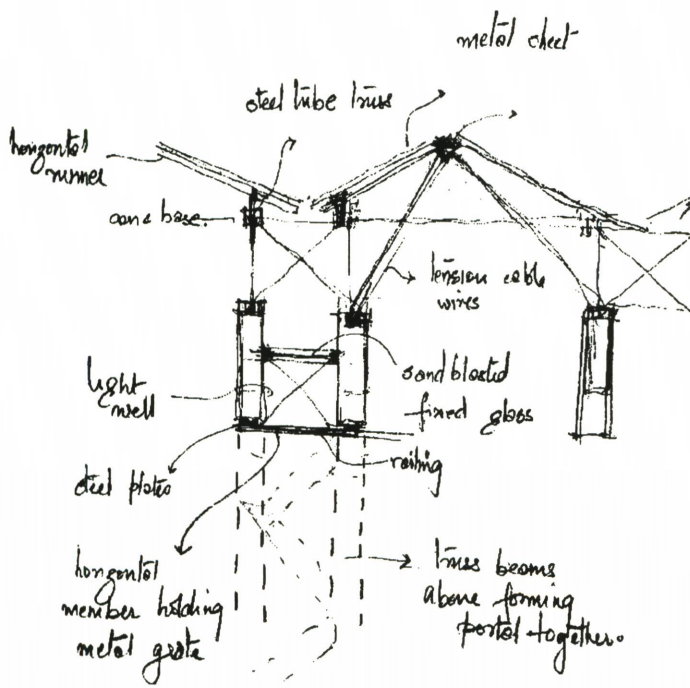 metal sheet
steel tube truss
horizontal
runner
cone base.
tension cable
wires
light
well
sand blasted
fixed glass
steel plates
railing
horizontal
member holding
metal grate
truss beams
above forming
portal together.